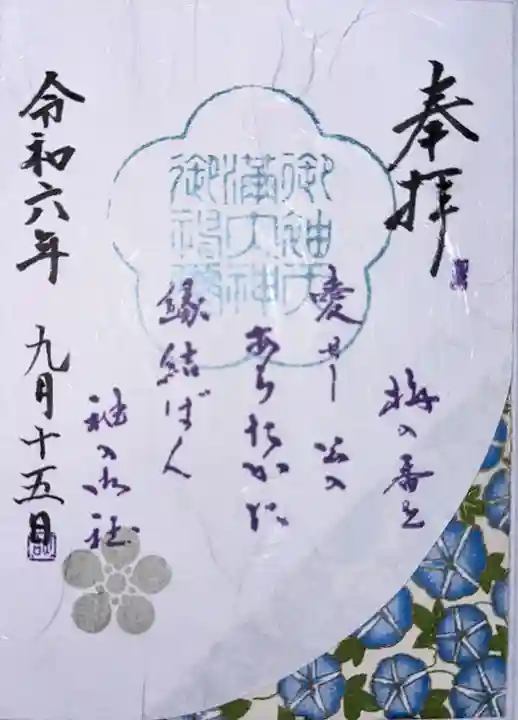 奉拝
梅の香を
愛せし 公の
あらたかに
縁結ばん
袖の水社
令和六年 九月十五日
御袖天
満大神
御